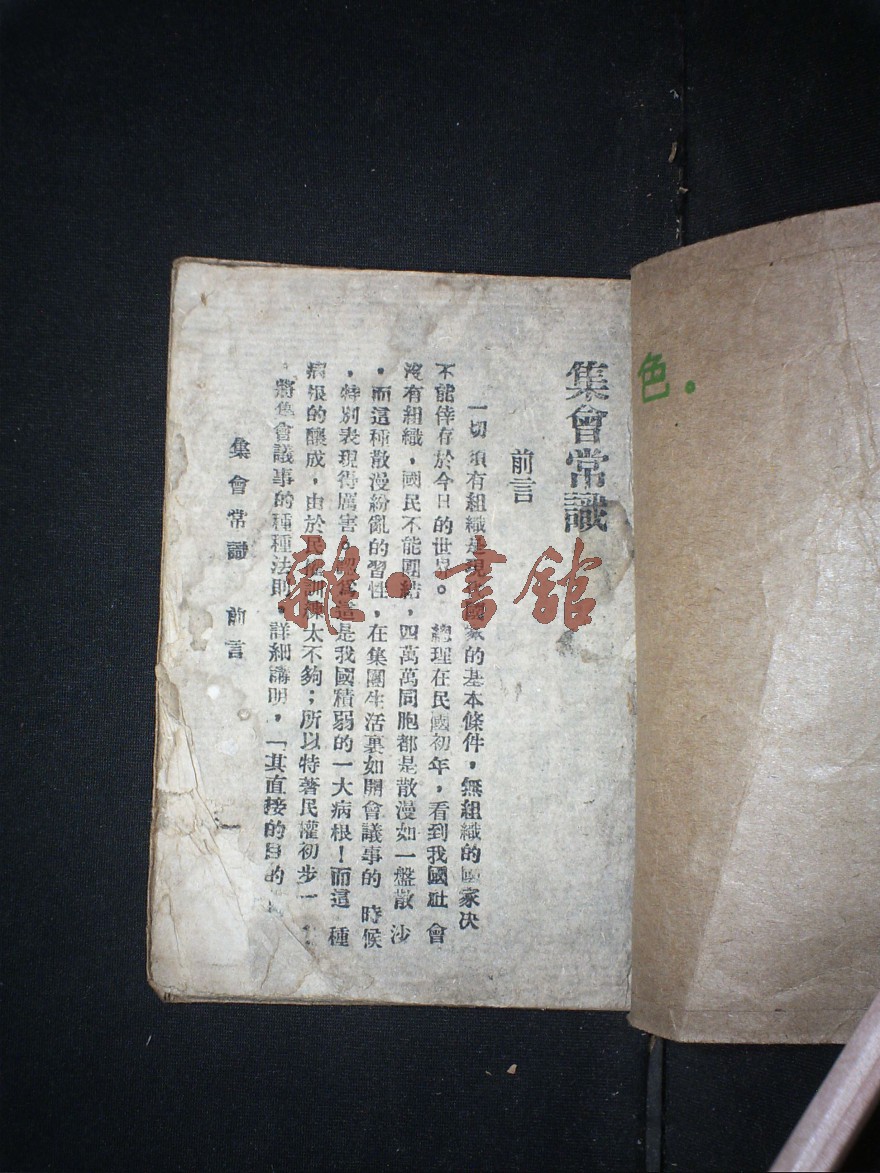 集會常識
前言
一切須有組織是現代國家的基本條件，無組織的國家決
不能倖存於今日的世界。總理在民國初年，看到我國社會
沒有組織，國民不能團結，四萬萬同胞都是散漫如一盤散沙
。而這種散漫紛亂的習性，在集團生活裏如開會議事的時候
，特別表現得厲害。認為這是我國積弱的一大病根！而這種
病根的釀成，由於民權訓練太不夠；所以特著民權初步一
將集會議事的種種法則，詳細講明，「其直接的目的
集會常識 前言
一
色.
雜·書館